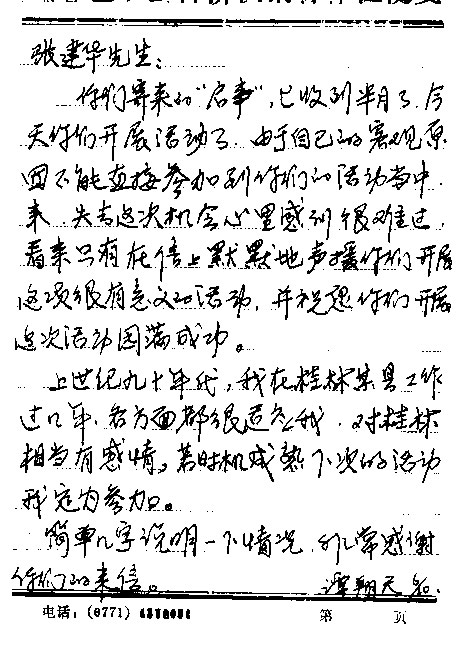 张建华先生：
你们寄来的“启事”，已收到半月了，今
天你们开展活动了，由于自己的客观原
因不能直接参加到你们的活动当中
来，失去这次机会心里感到很难过，
看来只有在信上默默地声援你们开展
这项很有意义的活动，并祝愿你们开展
这次活动圆满成功。
上世纪九十年代，我在桂林某县工作
过几年，各方面都很适合我，对桂林
相当有感情。若时机成熟下次的活动
我定为参加。
简单几字说明一下情况，非常感谢
你们的来信。 谭翔天
电话：(0771) 第 页